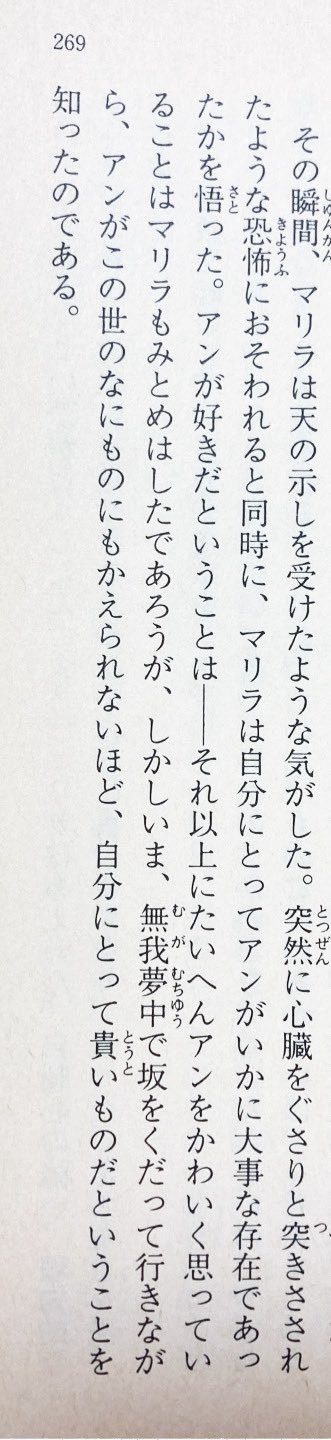 269
その瞬間、マリラは天の示しを受けたような気がした。突然に心臓をぐさりと突きさされ
たような恐怖におそわれると同時に、マリラは自分にとってアンがいかに大事な存在であっ
たかを悟った。アンが好きだということは――それ以上にたいへんアンをかわいく思ってい
ることはマリラもみとめはしたであろうが、しかしいま、無我夢中で坂をくだって行きなが
ら、アンがこの世のなにものにもかえられないほど、自分にとって貴いものだということを
知ったのである。